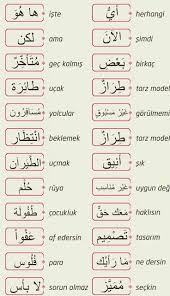 ها هُوَ işte أيُّ herhangi
لكن ama الآنَ şimdi
مُتَأخّرٌ geç kalmış بَعْضٌ birkaç
طائِرَة uçak طِرَازٌ tarz model
مُسَافِرُونَ yolcular غَيْرُ مَسْبُوقٍ görülmemi
انْتِظَار beklemek طِرَازٌ tarz model
الطَّيَران uçmak أنِيق şık
حُلْم rüya غَيْر مُنَاسِب uygun değ
طُفُولَة çocukluk مَعَكَ حَقّ haklısın
عَفْواً af edersin تَصْمِيم tasarım
فُلُوس para مَا رَأيُكَ ne dersin
لا بَأس sorun olmaz مُمَيَّز seçkin